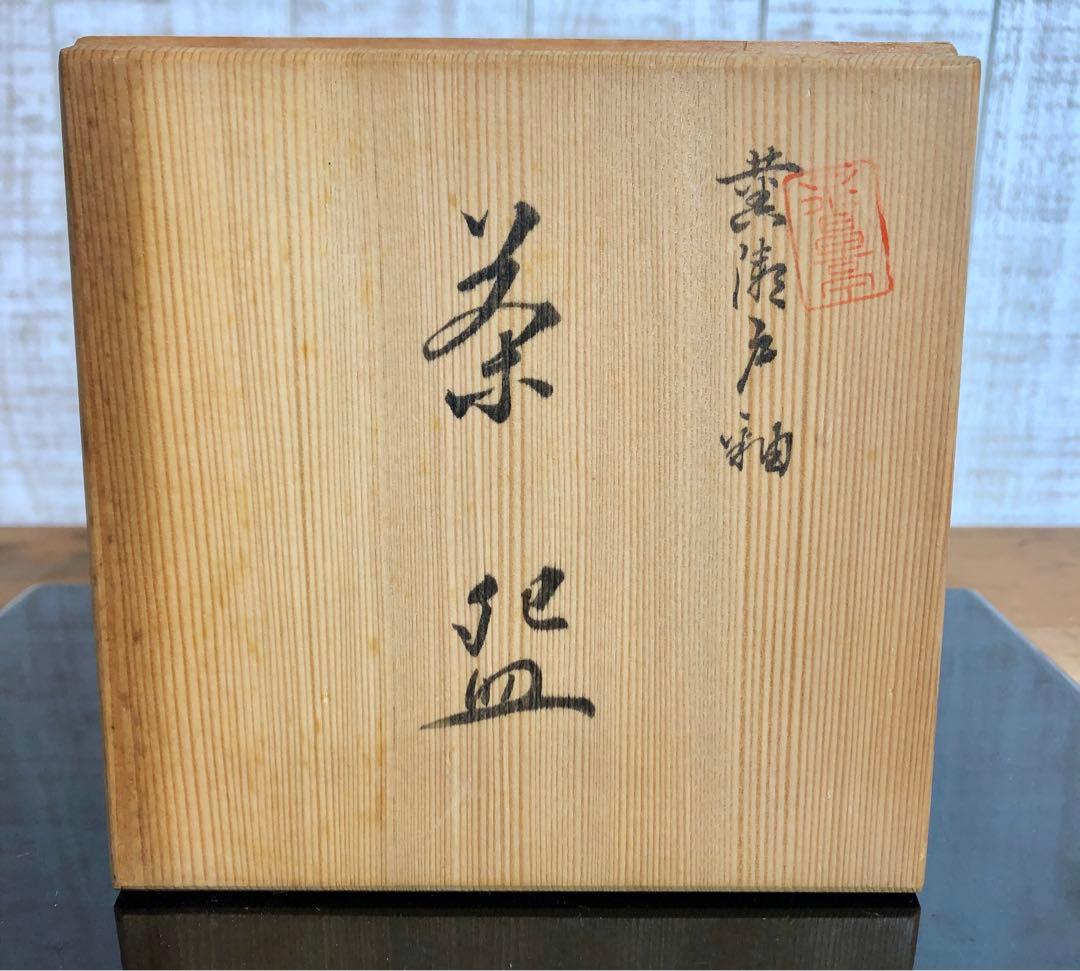 黄瀬戸釉
茶盌